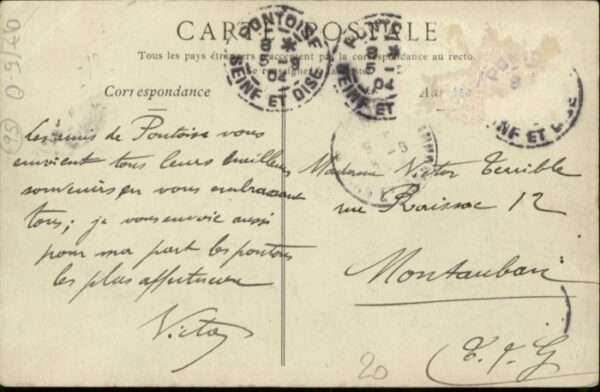 CARTE POSTALE
Tous les pays étrangers n'acceptent pas la correspondance au recto.
Correspondance
PONTOISE
SEINE ET OISE
PONTOISE
SEINE ET OISE
SEINE ET OISE
Les amis de Pontoise vous
envoient tous leurs meilleurs
souvenirs en vous embrassant
tous; je vous envoie aussi
pour ma part les pontons
les plus affectueux
Victor
Madame Victor Terrible
rue Raissac 12
Montauban
T. & G
20